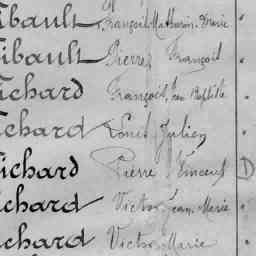 ibault François Mathurin Marie
ibault Pierre François
ichard François, Jean Baptiste
chard Louis Julien
ichard Pierre Vincent D
chard Victor Jean Marie
chard Victor Marie